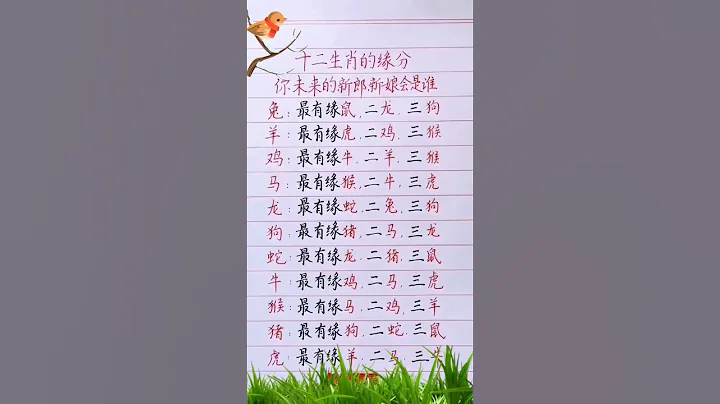 十二生肖的缘分
你未来的新郎.新娘会是谁
兔:最有缘鼠,二龙,三狗
羊:最有缘虎,二鸡,三猴
鸡:最有缘牛,二羊,三猴
马:最有缘猴,二牛,三虎
龙:最有缘蛇,二兔,三狗
狗:最有缘猪,二马,三龙
蛇:最有缘龙,二猪,三鼠
牛:最有缘鸡,二马,三虎
猴:最有缘马,二鸡,三羊
猪:最有缘狗,二蛇,三鼠
虎:最有缘羊,二马,三